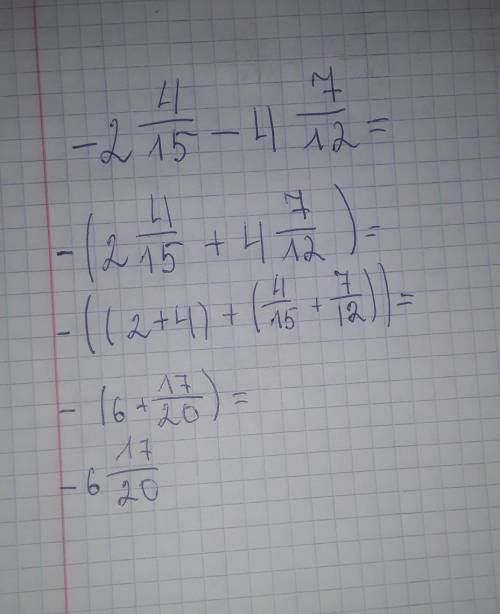 -2 4/15 - 4 7/12 =
-(2 4/15 + 4 7/12) =
-((2+4) + (4/15 + 7/12)) =
-(6 + 17/20) =
-6 17/20